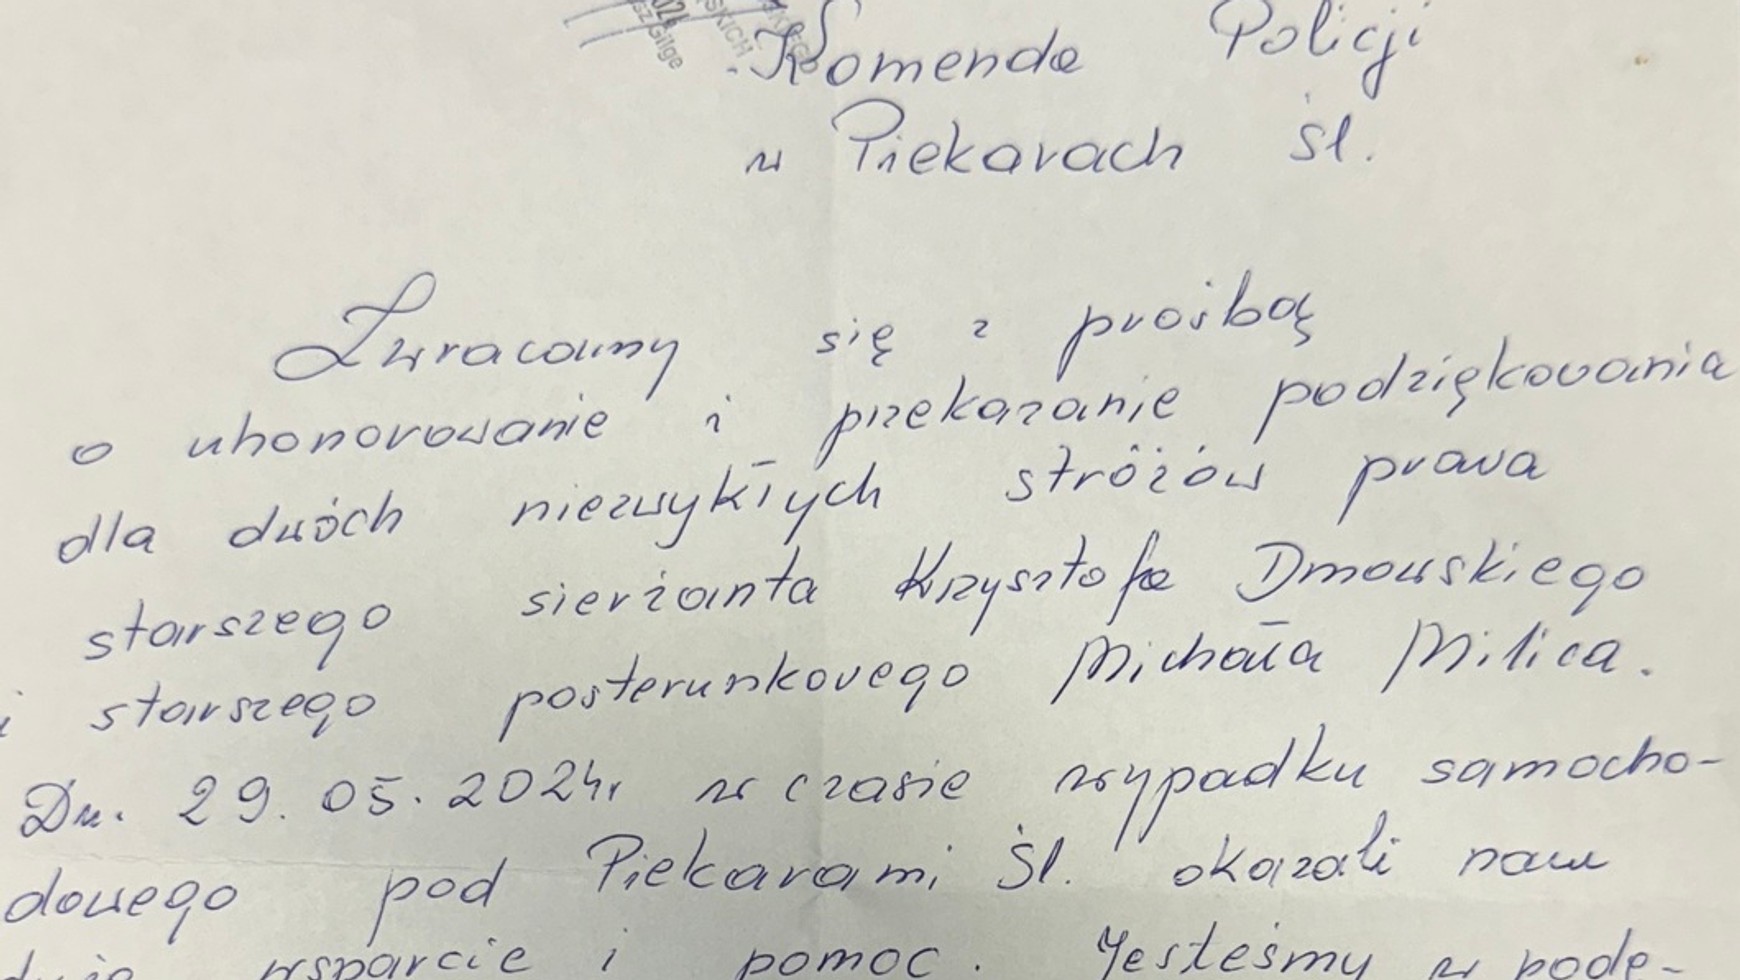 Komenda Policji
w Piekarach Śl.
Zwracamy się z prośbą
o uhonorowanie i przekazanie podziękowania
dla dwóch niezwykłych stróżów prawa
starszego sierżanta Krzysztofa Dmowskiego
i starszego posterunkowego Michała Milica.
Dn. 29.05.2024r w czasie wypadku samocho-
dowego pod Piekarami Śl. okazali nam
wsparcie i pomoc. Jesteśmy w pode-